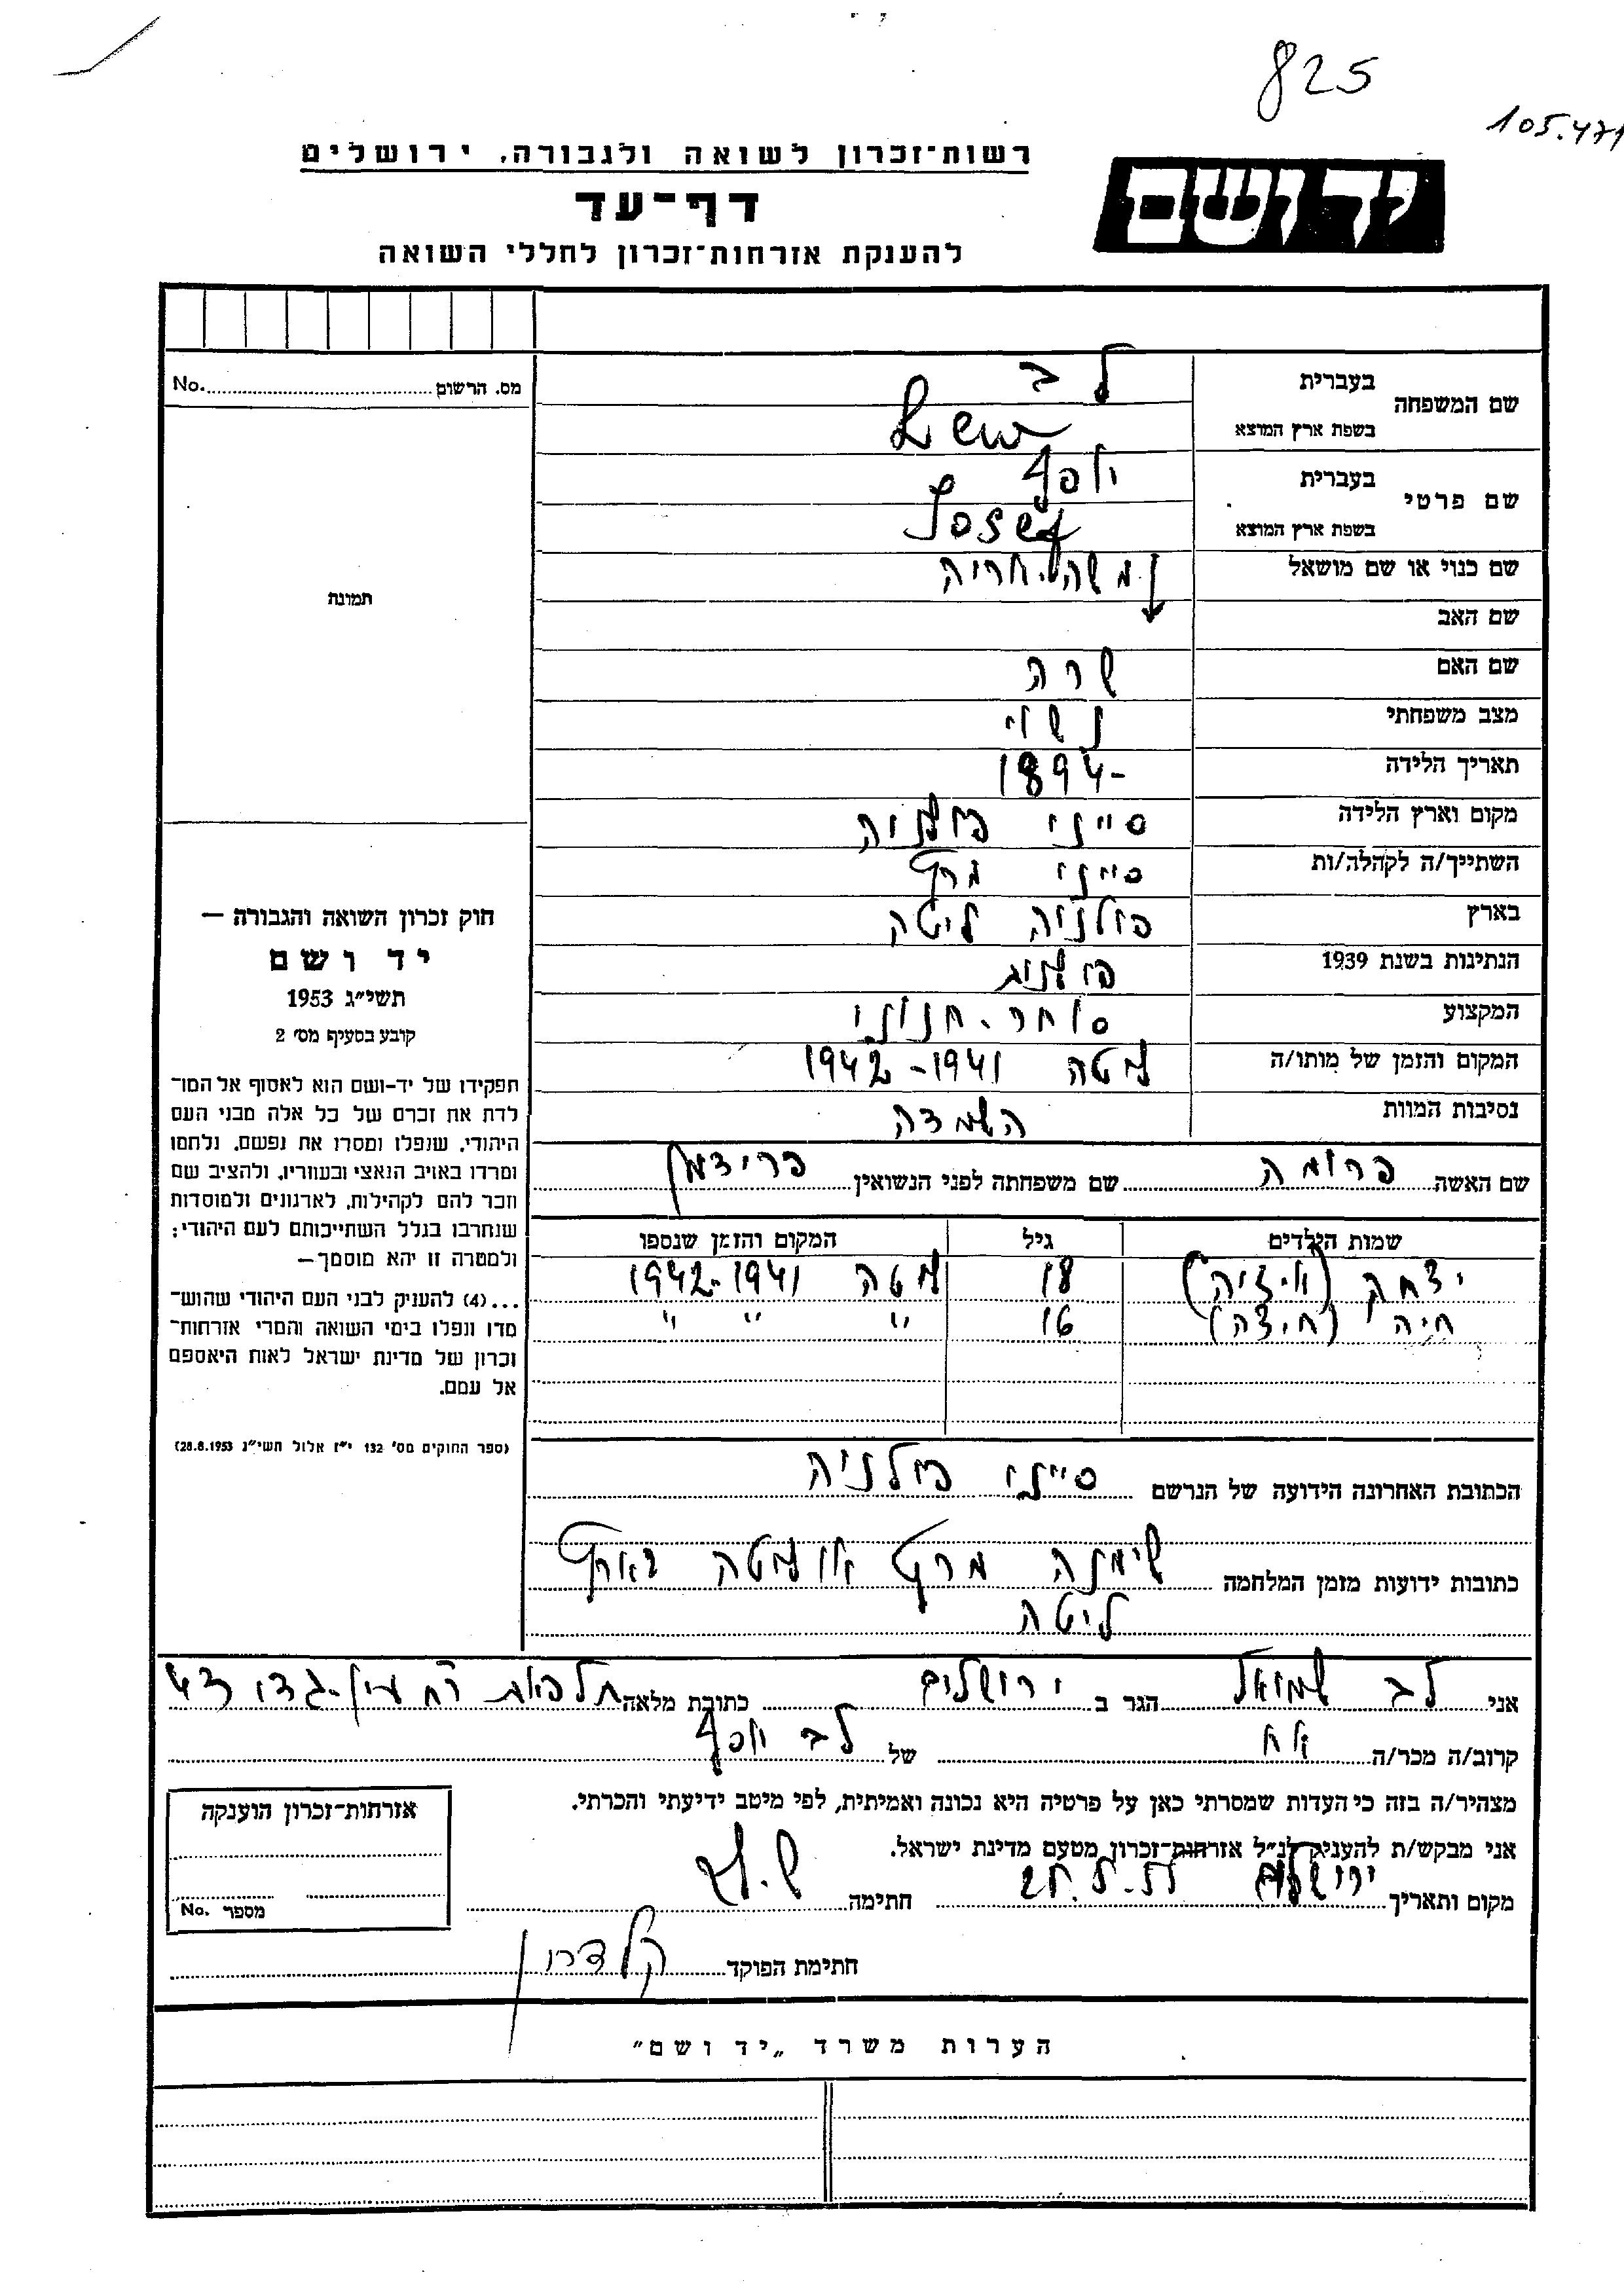 825
105.471
רשות־זכרון לשואה ולגבורה, ירושלים
יד ושם
דף־עד
להענקת אזרחות־זכרון לחללי השואה
מס. הרשום No.
תמונה
שם המשפחה בעברית לב
בשפת ארץ המוצא Lew
שם פרטי בעברית יוסף
בשפת ארץ המוצא Josef
שם כנוי או שם מושאל משה אריה
שם האב
שם האם שרה
מצב משפחתי נשוי
תאריך הלידה 1894-
מקום וארץ הלידה סייני פולניה
השתייך/ה לקהלה/ות סייני
בארץ פולניה ליטה
הנתינות בשנת 1939 פולנית
המקצוע סוחר - חנוני
המקום והזמן של מותו/ה 1941-1942
נסיבות המוות השמדה
שם האשה פרומה שם משפחתה לפני הנשואין פרידמן
שמות הילדים גיל המקום והזמן שנספו
יצחק (איציה) 18 1941-1942
חיה (חיצה) 16 " " "
הכתובת האחרונה הידועה של הנרשם סייני פולניה
כתובות ידועות מזמן המלחמה
ליטה
חוק זכרון השואה והגבורה —
יד ושם
תשי״ג 1953
קובע בסעיף מס׳ 2
תפקידו של יד-ושם הוא לאסוף אל המו־
לדת את זכרם של כל אלה מבני העם
היהודי, שנפלו ומסרו את נפשם, נלחמו
ומרדו באויב הנאצי ובעוזריו, ולהציב שם
וזכר להם לקהילות, לארגונים ולמוסדות
שנחרבו בגלל השתייכותם לעם היהודי;
ולמטרה זו יהא מוסמך —
...(4) להעניק לבני העם היהודי שהוש־
מדו ונפלו בימי השואה והמרי אזרחות־
זכרון של מדינת ישראל לאות היאספם
אל עמם.
(ספר החוקים מס׳ 132 י״ז אלול תשי״ג 28.8.1953)
אני לב שמואל הגר ב ירושלים כתובת מלאה
קרוב/ה מכר/ה אח של לב יוסף
מצהיר/ה בזה כי העדות שמסרתי כאן על פרטיה היא נכונה ואמיתית, לפי מיטב ידיעתי והכרתי.
אני מבקש/ת להעניק לנ״ל אזרחות־זכרון מטעם מדינת ישראל.
מקום ותאריך ירושלים חתימה
חתימת הפוקד קלדרון
אזרחות־זכרון הוענקה
מספר No.
הערות משרד „יד ושם״